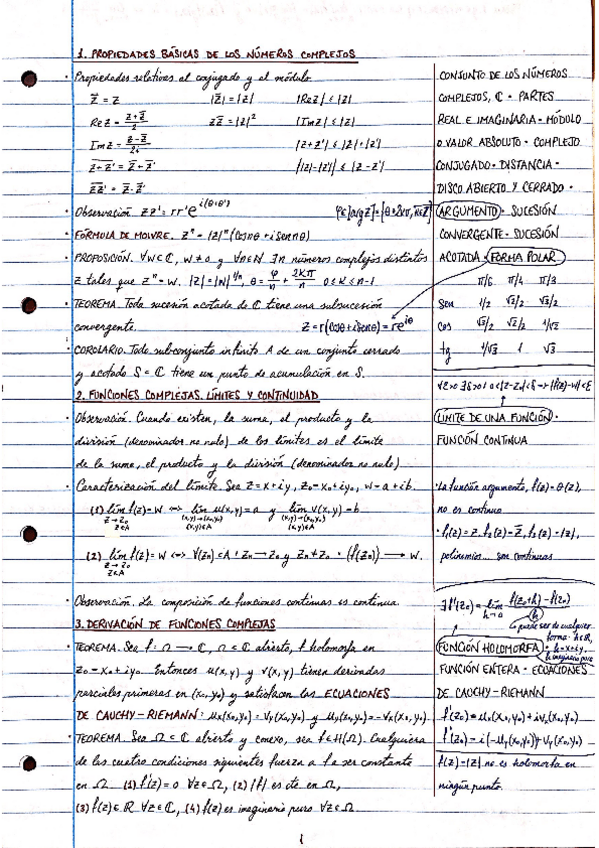 1. PROPIEDADES BÁSICAS DE LOS NÚMEROS COMPLEJOS
· Propiedades relativas al conjugado y al módulo.
z̄̄ = z |z̄| = |z| |Re z| ≤ |z|
Re z = (z + z̄)/2 z z̄ = |z|² |Im z| ≤ |z|
Im z = (z - z̄)/2i |z + z'| ≤ |z| + |z'|
z + z' = z̄ + z̄' ||z| - |z'|| ≤ |z - z'|
zz' = z̄ · z̄'
· Observación zz' = rr'e^{i(θ+θ')}
· FÓRMULA DE MOIVRE. zⁿ = |z|ⁿ (cos nθ + i sen nθ)
· PROPOSICIÓN. ∀w∈ℂ, w ≠ 0 y ∀n∈ℕ ∃n números complejos distintos
z tales que zⁿ = w. |z| = |w|^{1/n}, θ = φ/n + 2kπ/n 0 ≤ k ≤ n-1
· TEOREMA. Toda sucesión acotada de ℂ tiene una subsucesión
convergente. z = r(cosθ + i senθ) = re^{iθ}
· COROLARIO. Todo subconjunto infinito A de un conjunto cerrado
y acotado S ⊂ ℂ tiene un punto de acumulación en S.
2. FUNCIONES COMPLEJAS. LÍMITES Y CONTINUIDAD
· Observación. Cuando existen, la suma, el producto y la
división (denominador no nulo) de los límites es el límite
de la suma, el producto y la división (denominador no nulo)
· Caracterización del límite. Sea z = x + iy, z₀ = x₀ + iy₀, w = a + ib.
(1) lim f(z) = w <=> lim u(x,y) = a y lim v(x,y) = b
z→z₀ (x,y)→(x₀,y₀) (x,y)→(x₀,y₀)
z∈A (x,y)∈A (x,y)∈A
(2) lim f(z) = w <=> ∀(zₙ) ⊂ A : zₙ → z₀ y zₙ ≠ z₀ · (f(zₙ)) → w.
z→z₀
z∈A
· Observación. La composición de funciones continuas es continua.
3. DERIVACIÓN DE FUNCIONES COMPLEJAS
· TEOREMA. Sea f: Ω → ℂ, Ω ⊂ ℂ abierto, f holomorfa en
z₀ = x₀ + iy₀. Entonces u(x,y) y v(x,y) tienen derivadas
parciales primeras en (x₀,y₀) y satisfacen las ECUACIONES
DE CAUCHY-RIEMANN: uₓ(x₀,y₀) = v_y(x₀,y₀) y u_y(x₀,y₀) = -vₓ(x₀,y₀).
· TEOREMA. Sea Ω ⊂ ℂ abierto y conexo, sea f∈H(Ω). Cualquiera
de las cuatro condiciones siguientes fuerza a f a ser constante
en Ω (1) f'(z) = 0 ∀z∈Ω, (2) |f| es cte en Ω,
(3) f(z)∈ℝ ∀z∈ℂ, (4) f(z) es imaginario puro ∀z∈Ω.
CONJUNTO DE LOS NÚMEROS
COMPLEJOS, ℂ · PARTES
REAL E IMAGINARIA · MÓDULO
O VALOR ABSOLUTO · COMPLEJO
CONJUGADO · DISTANCIA ·
DISCO ABIERTO Y CERRADO ·
ARGUMENTO · SUCESIÓN
CONVERGENTE · SUCESIÓN
ACOTADA · FORMA POLAR
π/6 π/4 π/3
sen 1/2 √2/2 √3/2
cos √3/2 √2/2 1/2
tg 1/√3 1 √3
LÍMITE DE UNA FUNCIÓN ·
FUNCIÓN CONTINUA
· La función argumento, f(z) = θ(z),
no es continua
· f₁(z) = z, f₂(z) = z̄, f₃(z) = |z|,
polinomios... son continuas
∃f'(z₀) = lim h→0 (f(z₀+h) - f(z₀))/h
puede ser de cualquier
forma: h∈ℝ,
h = x + iy,
h imaginario puro
FUNCIÓN HOLOMORFA ·
FUNCIÓN ENTERA · ECUACIONES
DE CAUCHY-RIEMANN
f'(z₀) = uₓ(x₀,y₀) + ivₓ(x₀,y₀)
f'(z₀) = i(-u_y(x₀,y₀)) + v_y(x₀,y₀)
f(z) = |z| no es holomorfa en
ningún punto.
1